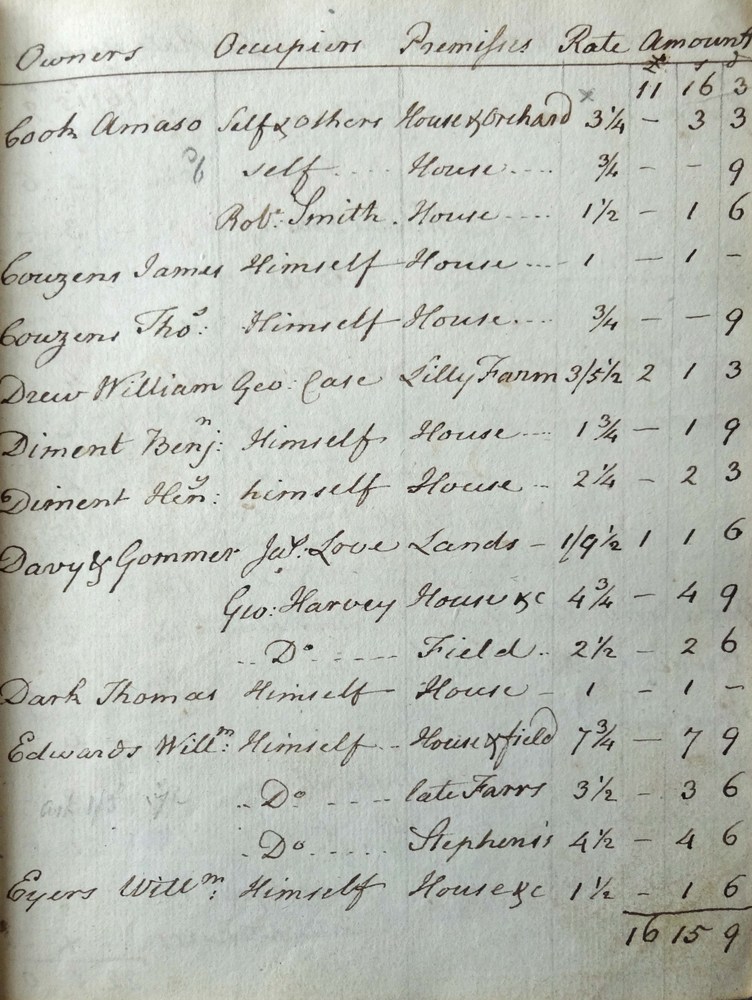 Owners Occupiers Premisses Rate Amount
£ s d
11 16 3
Cook Amaso Self & others House & Orchard 3 1/4 - 3 3
self .... House .... 3/4 - - 9
Robt: Smith . House .... 1 1/2 - 1 6
Couzens James Himself House ... 1 - 1 -
Couzens Thos: Himself House ... 3/4 - - 9
Drew William Geo: Case Lilly Farm 3/5 1/2 2 1 3
Diment Benjn: Himself House ... 1 3/4 - 1 9
Diment Heny: himself House .. 2 1/4 - 2 3
Davy & Gommer Jas. Love Lands - 1/9 1/2 1 1 6
Geo: Harvey House &c 4 3/4 - 4 9
.. Do ..... Field .. 2 1/2 - 2 6
Dark Thomas Himself House - 1 - 1 -
Edwards Willm: Himself .. House & field 7 3/4 - 7 9
.. Do .... late Farrs 3 1/2 - 3 6
.. Do ..... Stephens's 4 1/2 - 4 6
Eyers Willm: Himself House &c 1 1/2 - 1 6
16 15 9